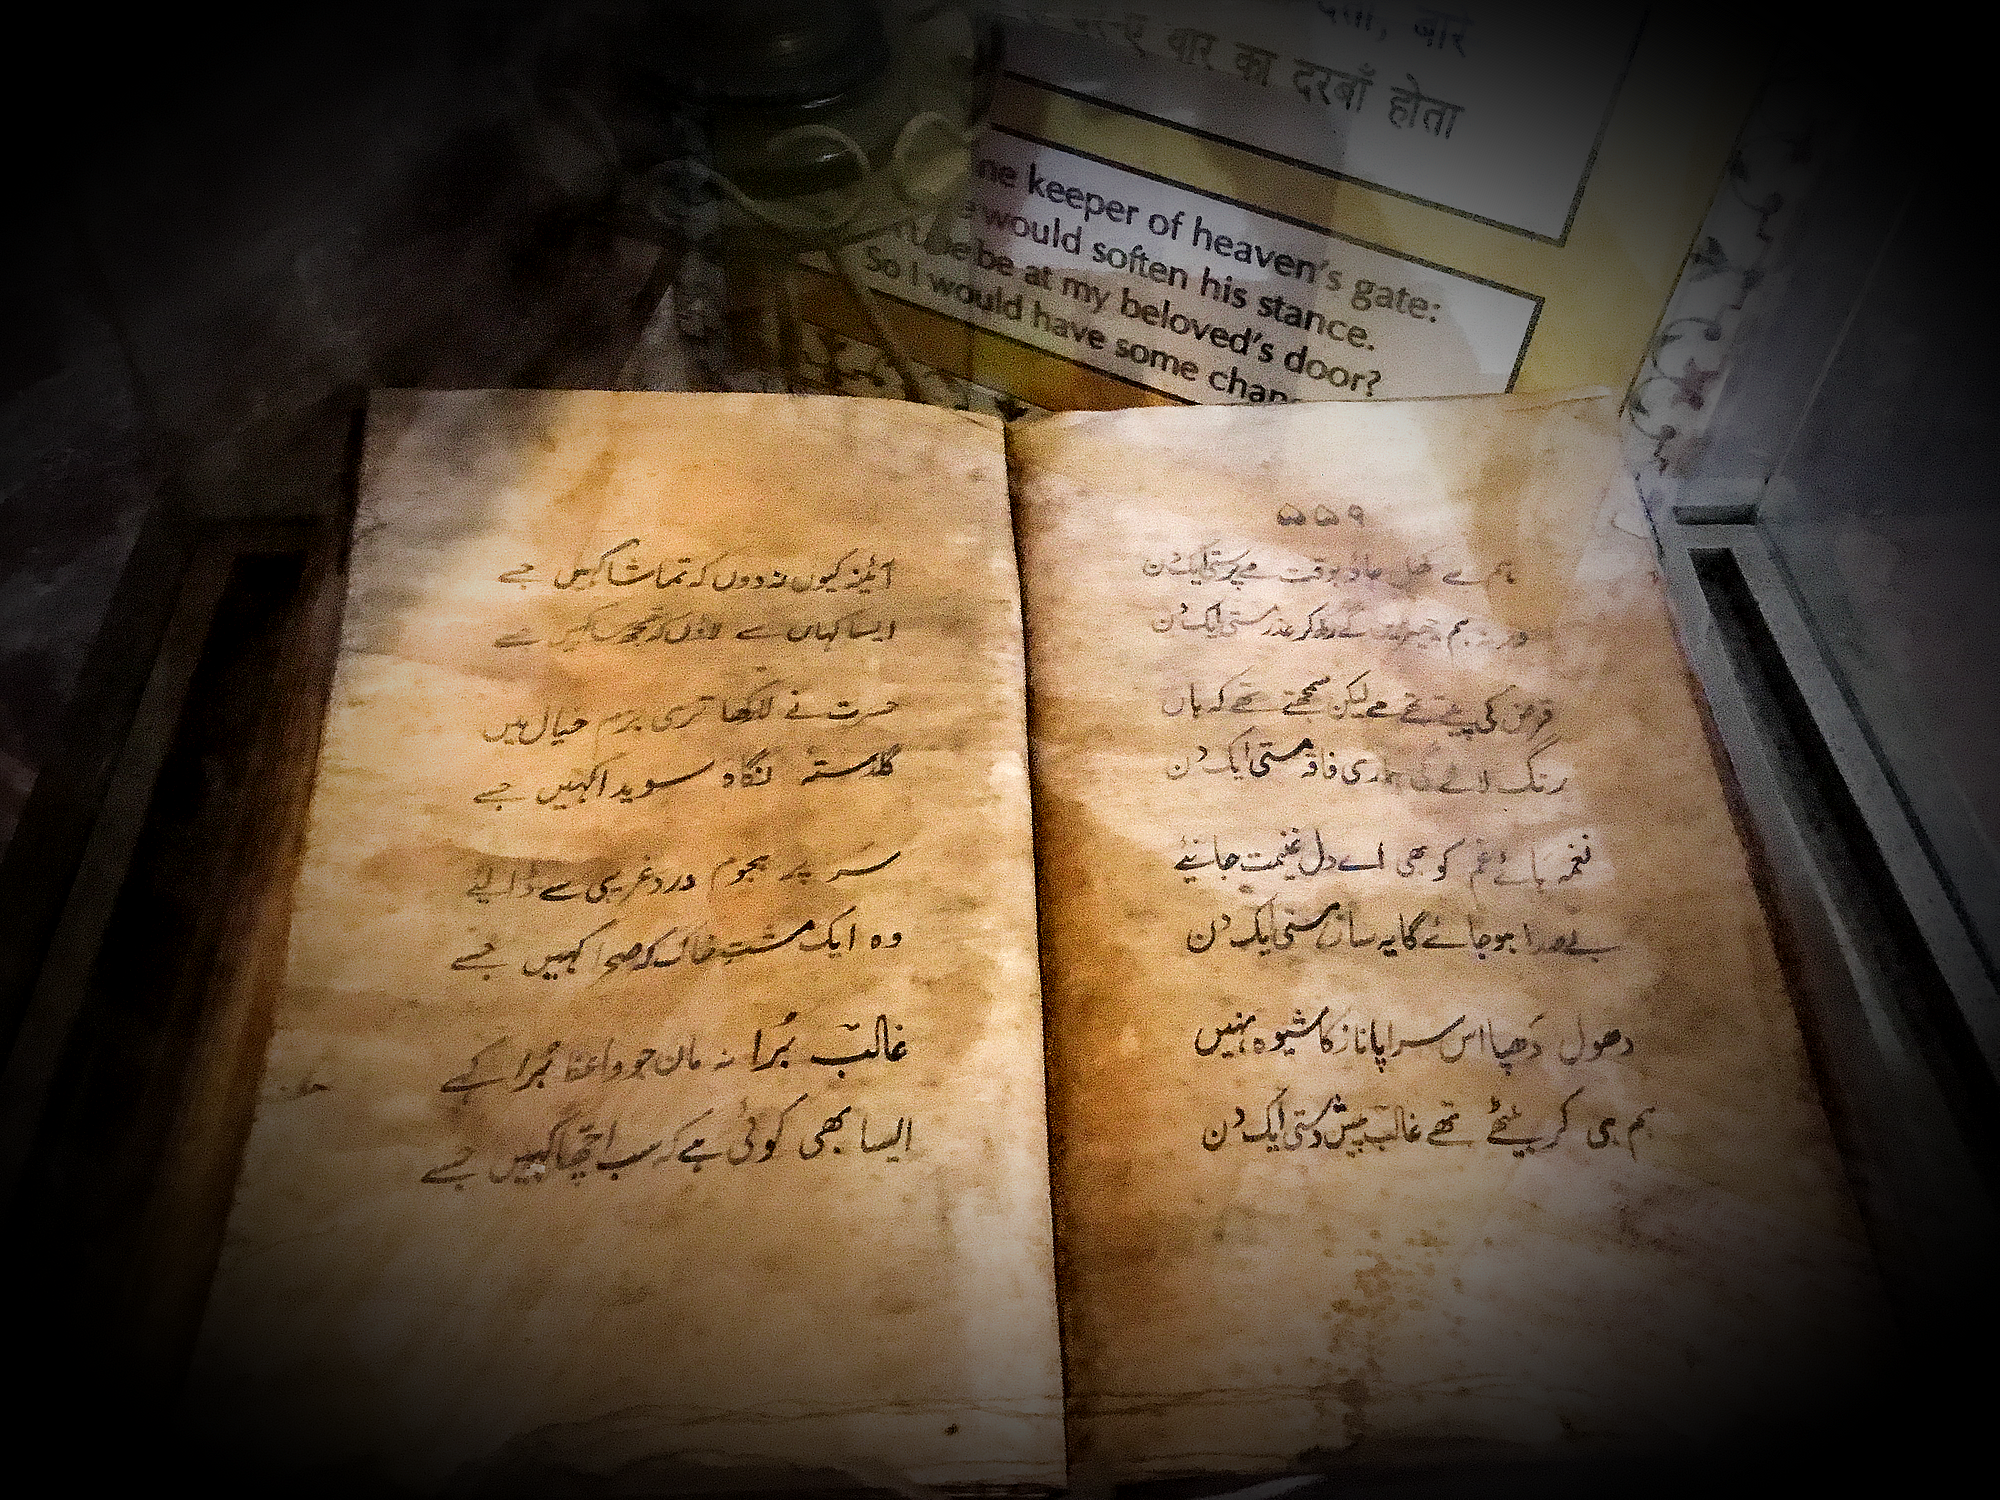 देता, बार
वार का दरबाँ होता
ne keeper of heaven's gate:
would soften his stance.
be at my beloved's door?
So I would have some chan
۵۵۹
ہم سے کھل جاؤ بوقت مے پرستی ایک دن
ورنہ ہم چھیڑیں گے رکھ کر عذر مستی ایک دن
قرض کی پیتے تھے مے لیکن سمجھتے تھے کہ ہاں
رنگ لائے گی ہماری فاقہ مستی ایک دن
نغمہ ہائے غم کو بھی اے دل غنیمت جانیئے
بے صدا ہو جائے گا یہ ساز ہستی ایک دن
دھول دھپا اس سراپا ناز کا شیوہ نہیں
ہم ہی کر بیٹھے تھے غالب پیش دستی ایک دن
آئینہ کیوں نہ دوں کہ تماشا کہیں جسے
ایسا کہاں سے لاؤں کہ تجھ سا کہیں جسے
حسرت نے لا رکھا تری بزم خیال میں
گلدستہ نگاہ سویدا کہیں جسے
سر پر ہجوم درد غریبی سے ڈالئے
وہ ایک مشت خاک کہ صحرا کہیں جسے
غالب بُرا نہ مان جو واعظ بُرا کہے
ایسا بھی کوئی ہے کہ سب اچھا کہیں جسے